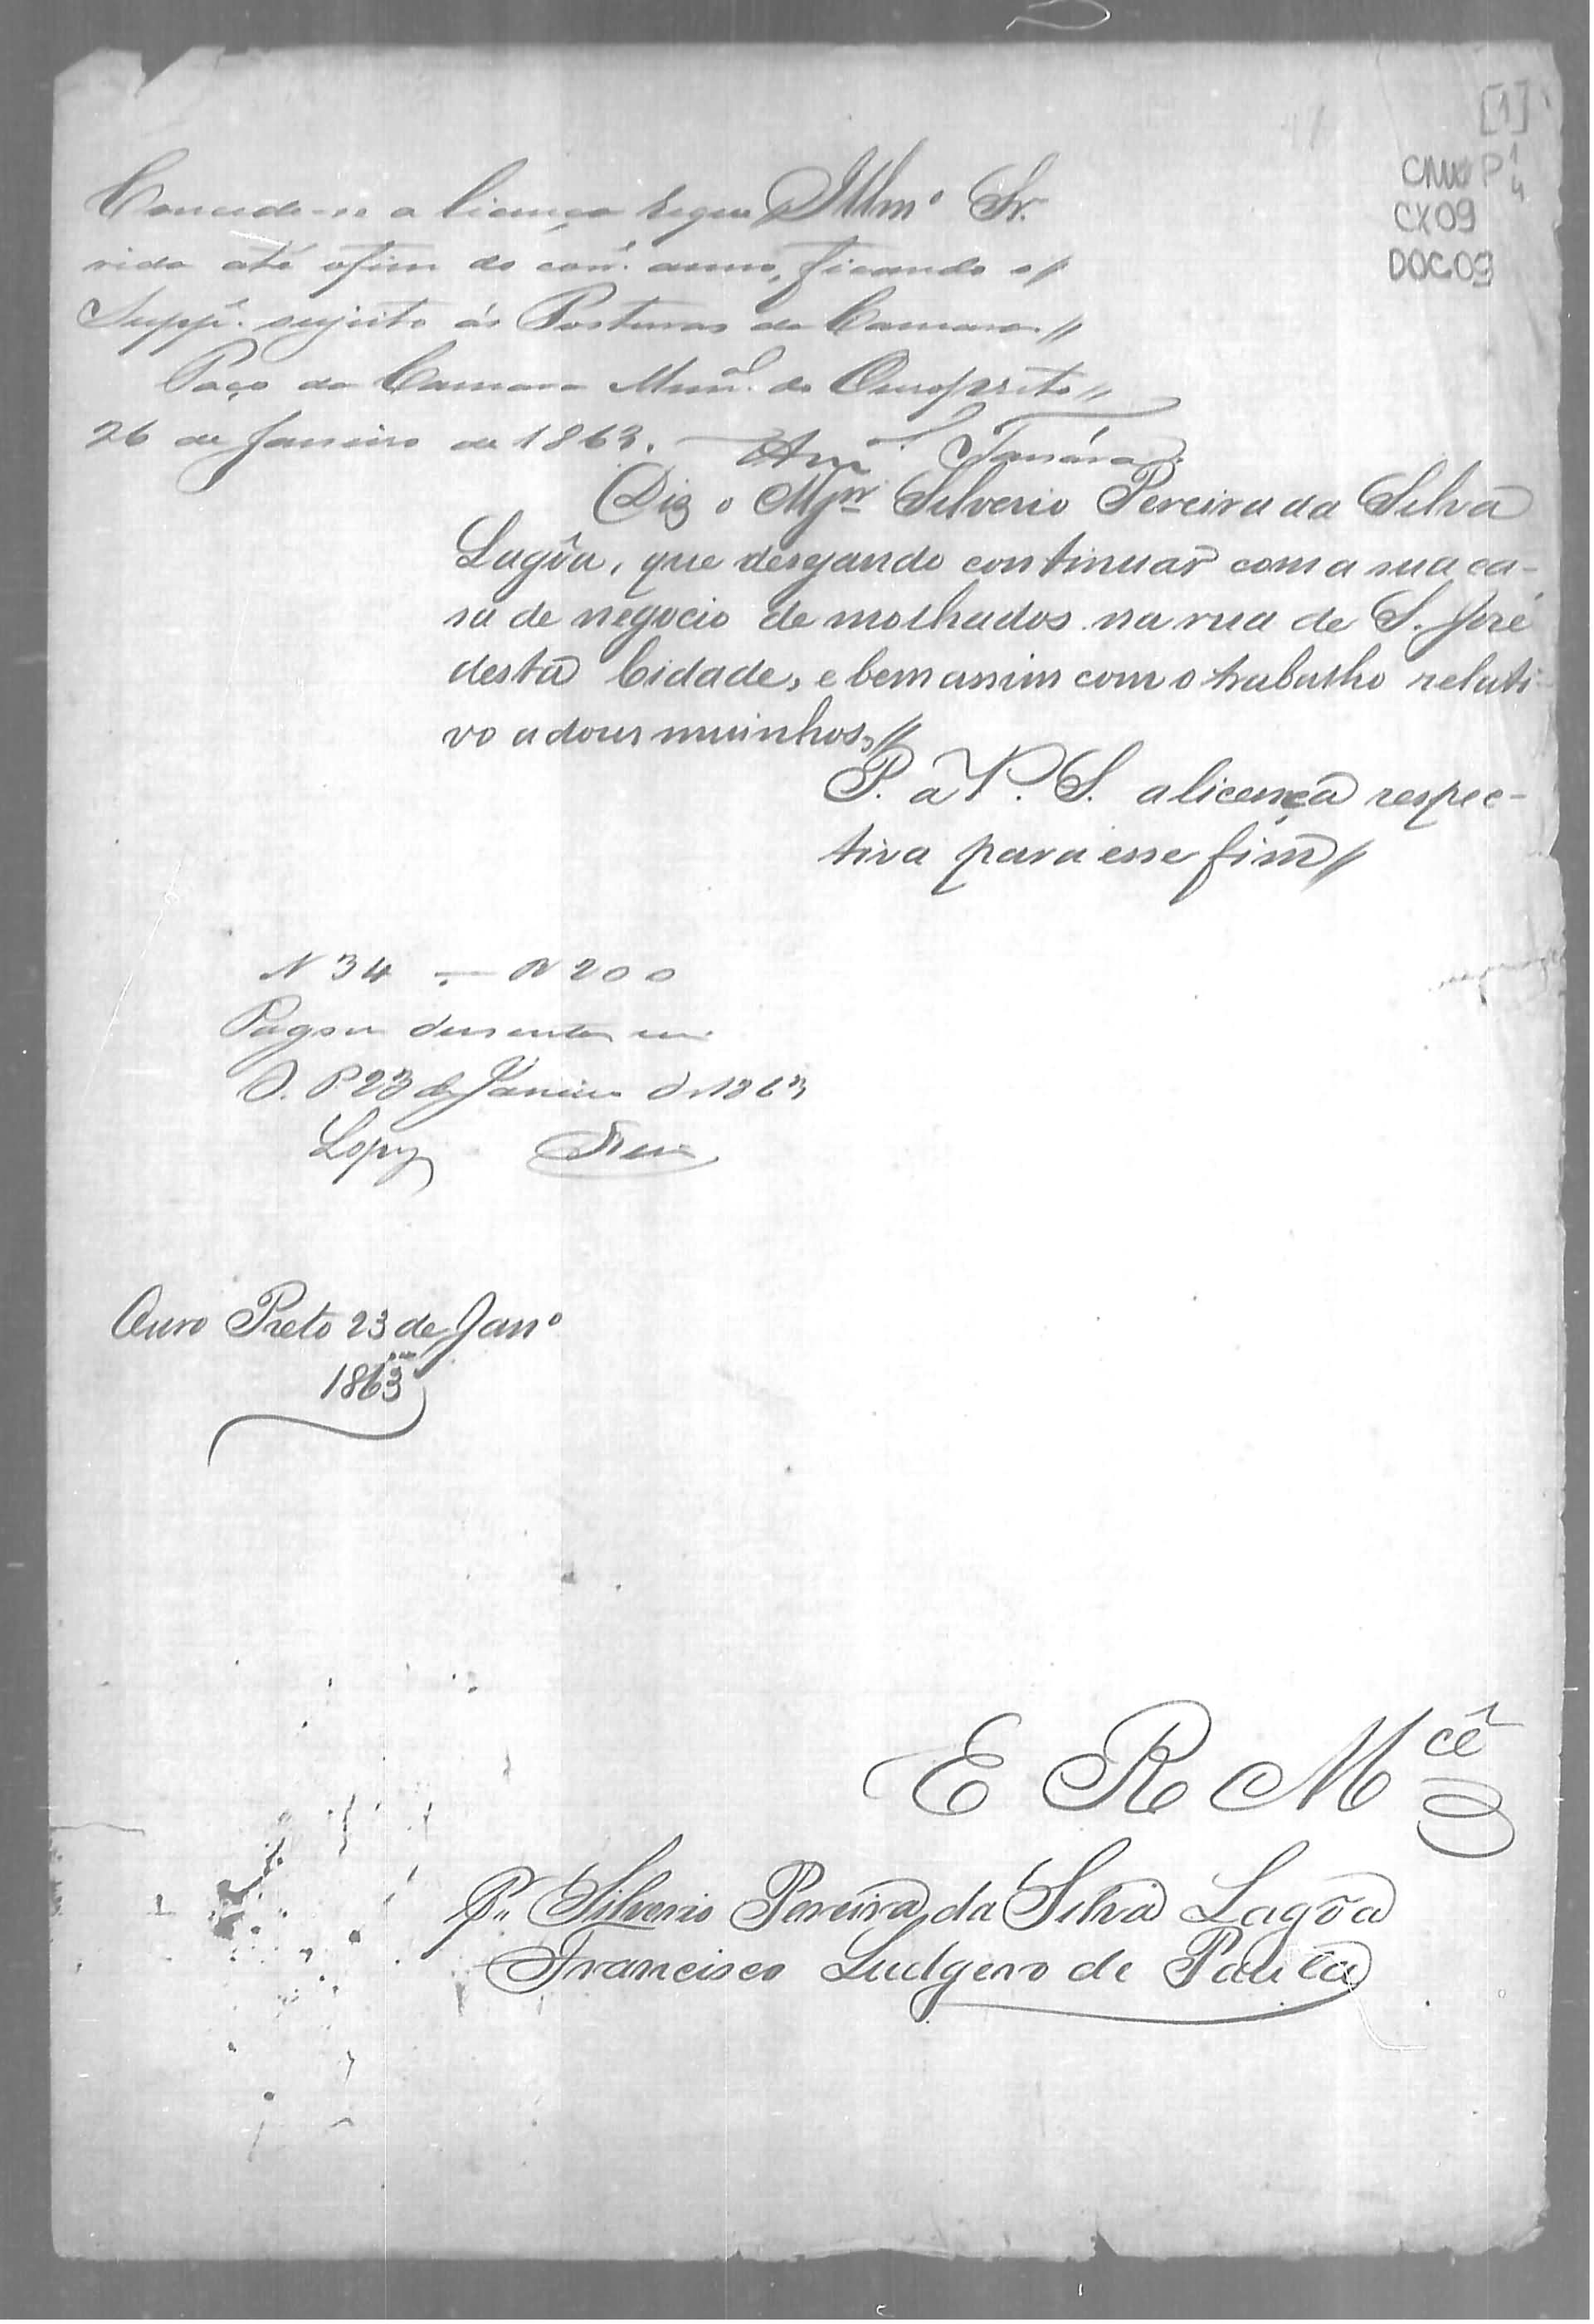 [1]
CMOP 1/4
CX09
DOC09
Illmº Sr.
Concede-se a licença reque
rida até o fim do corr. anno, ficando o//
Suppe. sujeito ás Posturas da Camara.//
Paço da Camara Mun.al do Ouropreto//
26 de Janeiro de 1863.
Diz o Mjor Silverio Pereira da Silva
Lagôa, que desejando continuar com a sua ca-
sa de negocio de molhados na rua de S. José
desta Cidade, e bem assim com o trabalho relati-
vo a dous muinhos,//
P. a V. S. a licença respec-
tiva para esse fim//
N 34 - R 200
Pagou dusentos
O. P. 23 de Janeiro de 1863
Lopes
Ouro Preto 23 de Janº
1863
E R Mcê
P.. Silverio Pereira da Silva Lagôa
Francisco Ludgero de Paula